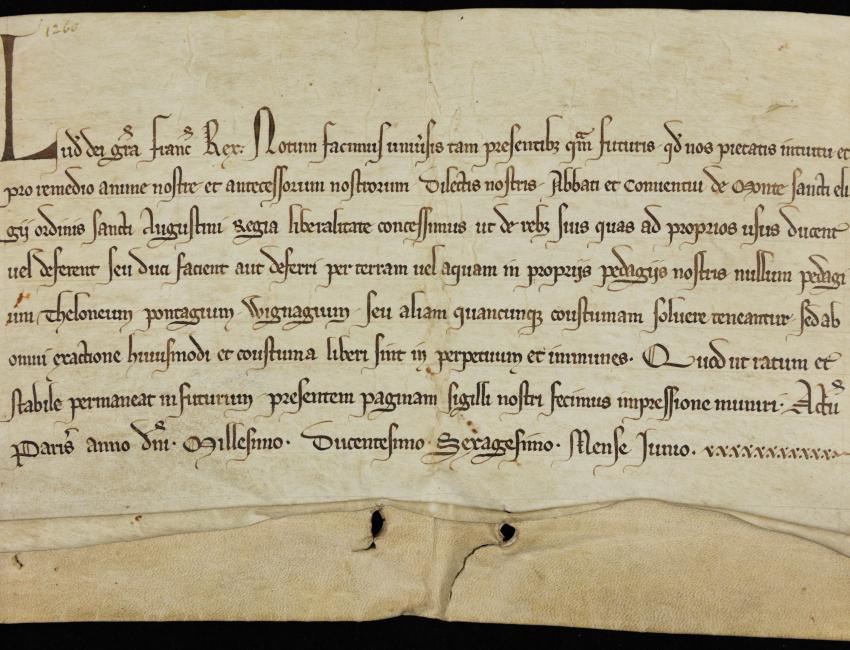 1260
Lud' dei gr̄a Franc̄ Rex. Notum facimus univ̄sis tam presentibꝫ qͣm futuris qd' nos pietatis intuitu et
pro remedio anime nostre et antecessorum nostrorum Dilectis nostris Abbati et Conventui de Monte sancti eli
gij ordinis sancti Augustini Regia liberalitate concessimus ut de rebꝫ suis quas ad proprios usus ducent
vel deferent seu duci facient aut deferri per terram vel aquam in proprijs pedagijs nostris nullum pedagi
um Theloneum pontagium Wignagium seu aliam quancunqꝫ coustumam solvere teneantur sed ab
omni exactione huiusmodi et coustuma liberi sint in perpetuum et immunes. Quod ut ratum et
stabile permaneat in futurum presentem paginam sigilli nostri fecimus impressione muniri. Actū
Paris̄ anno dn̄i. Millesimo. Ducentesimo Sexagesimo. Mense Junio. xxxxxxxxxxxx